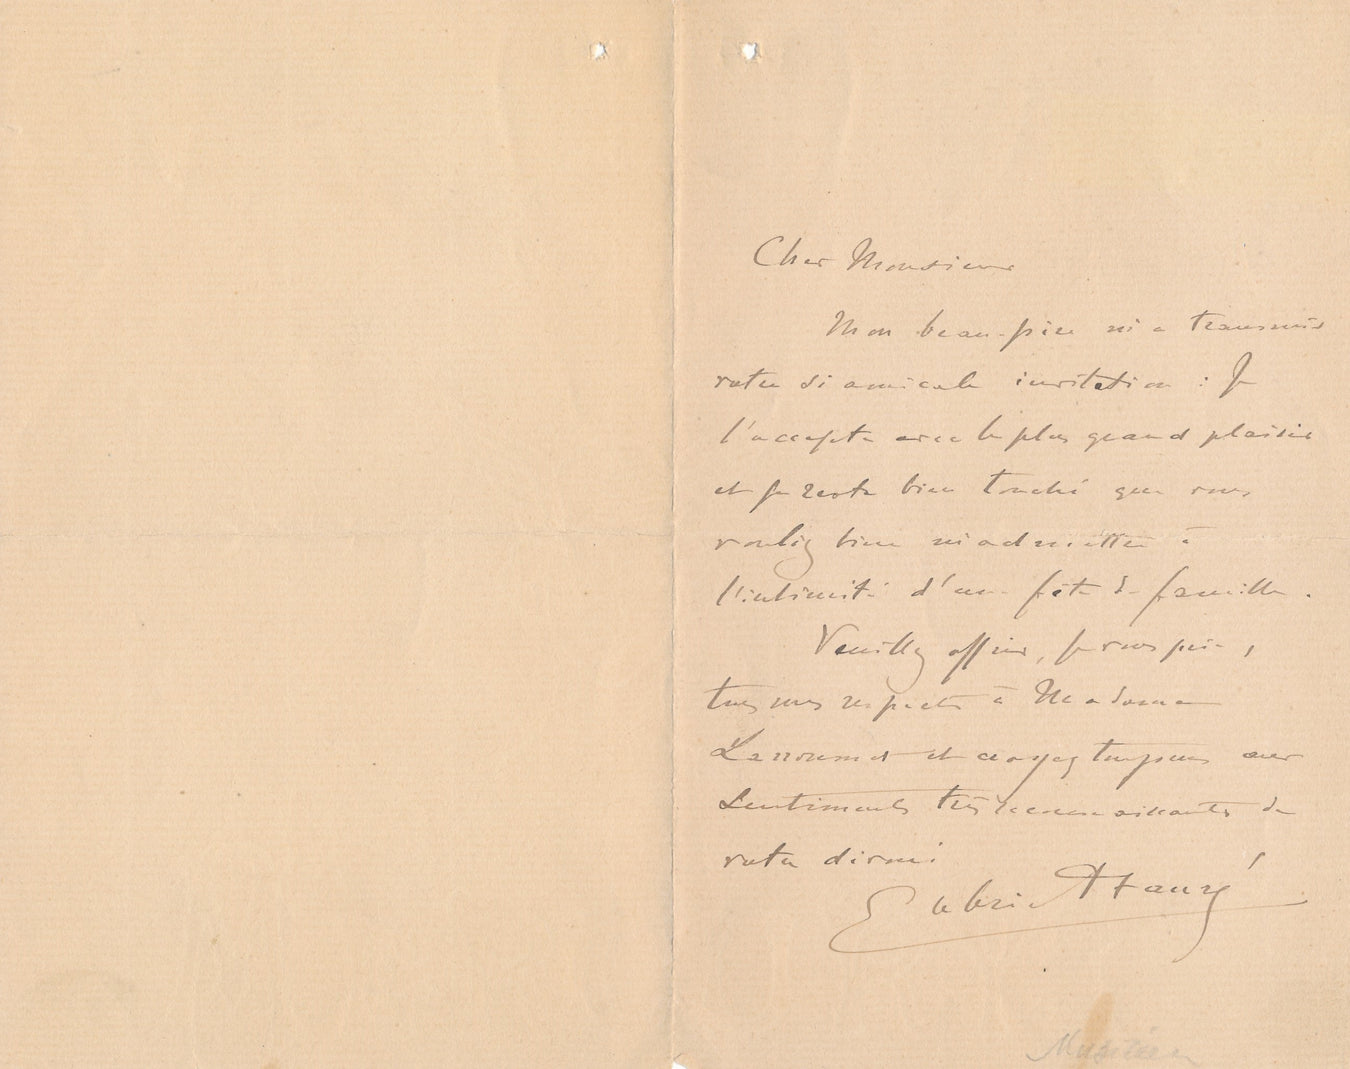 Cher Monsieur
Mon beau-père m'a transmis
votre si amicale invitation : Je
l'accepte avec le plus grand plaisir
et je reste bien touché que vous
vouliez bien m'admettre à
l'intimité d'une fête de famille.
Veuillez offrir, je vous prie,
tous mes respects à Madame
Larroumet et croyez toujours aux
sentiments très reconnaissants de
votre dévoué
Gabriel Fauré
Musicien